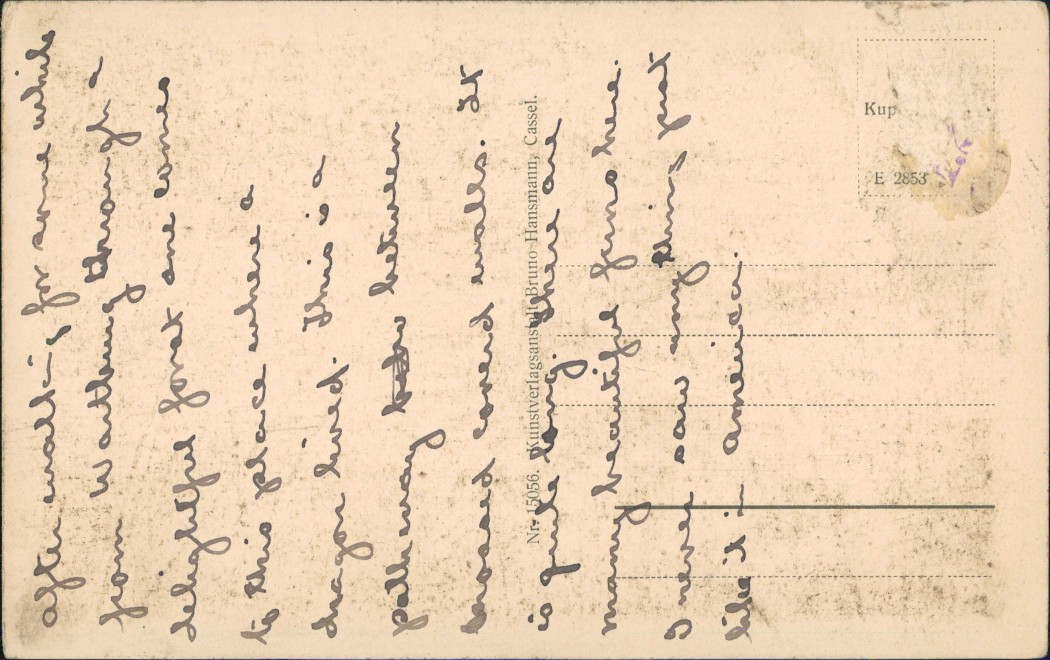 after walking for some while
from Wartburg through a
delightful forest one comes
to this place where a
dragon lived. This is a
pathway between
mossed coverd walls. It
is quite long. There are
many beautiful ferns here.
I never saw any thing just
like it in America.
Nr. 15056. Kunstverlagsanstalt Bruno Hansmann, Cassel.
Kup
E 2853